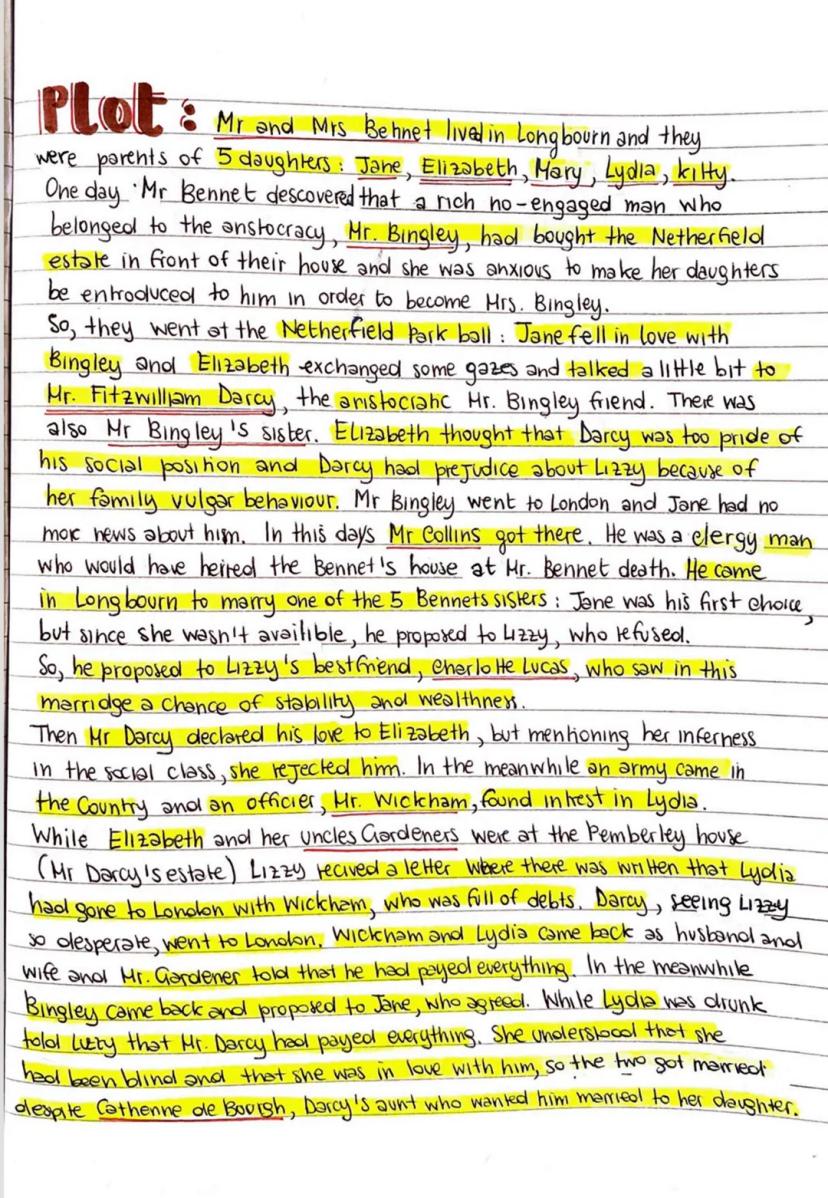 Plot: Mr and Mrs Behnet lived in Longbourn and they
were parents of 5 daughters: Jane, Elizabeth, Mary, Lydia, kitty.
One day Mr Bennet descovered that a rich no-engaged man who
belonged to the aristocracy, Mr. Bingley, had bought the Netherfield
estate in front of their house and she was anxious to make her daughters
be entroduced to him in order to become Mrs. Bingley.
So, they went at the Netherfield Park ball: Jane fell in love with
Bingley and Elizabeth exchanged some gazes and talked a little bit to
Mr. Fitzwilliam Darcy, the aristocratic Mr. Bingley friend. There was
also Mr Bingley's sister. Elizabeth thought that Darcy was too pride of
his social position and Darcy had prejudice about Lizzy because of
her family vulgar behaviour. Mr Bingley went to London and Jane had no
more news about him. In this days Mr Collins got there. He was a clergy man
who would have heired the Bennet's house at Mr. Bennet death. He came
in Longbourn to marry one of the 5 Bennets sisters: Jane was his first choice,
but since she wasn't availible, he proposed to Lizzy, who refused.
So, he proposed to Lizzy's bestfriend, Charlotte Lucas, who saw in this
marridge a chance of stability and wealthness.
Then Mr Darcy declared his love to Elizabeth, but mentioning her inferness
in the social class, she rejected him. In the meanwhile an army came in
the Country and an officier, Mr. Wickham, found intrest in Lydia.
While Elizabeth and her uncles Gardeners were at the Pemberley house
(Mr Darcy's estate) Lizzy recived a letter where there was written that Lydia
had gone to London with Wickham, who was fill of debts. Darcy, seeing Lizzy
so desperate, went to London. Wickham and Lydia came back as husband and
wife and Mr. Gardener told that he had payed everything. In the meanwhile
Bingley came back and proposed to Jane, who agreed. While Lydia was drunk
told Lizzy that Mr. Darcy had payed everything. She understood that she
had been blind and that she was in love with him, so the two got married
despite Catherine de Bourgh, Darcy's aunt who wanted him married to her daughter.